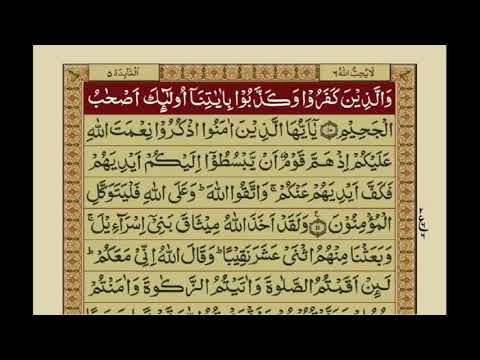 لَا يُحِبُّ اللهُ ٦
اَلْمَآئِدَة ٥
وَالَّذِيْنَ كَفَرُوْا وَكَذَّبُوْا بِاٰيٰتِنَآ اُولٰٓئِكَ اَصْحٰبُ
الْجَحِيْمِ ۝١٠ يٰٓاَيُّهَا الَّذِيْنَ اٰمَنُوا اذْكُرُوْا نِعْمَتَ اللهِ
عَلَيْكُمْ اِذْ هَمَّ قَوْمٌ اَنْ يَّبْسُطُوْٓا اِلَيْكُمْ اَيْدِيَهُمْ
فَكَفَّ اَيْدِيَهُمْ عَنْكُمْ ۚ وَاتَّقُوا اللهَ ؕ وَعَلَى اللهِ فَلْيَتَوَكَّلِ
الْمُؤْمِنُوْنَ ۝١١ وَلَقَدْ اَخَذَ اللهُ مِيْثَاقَ بَنِيْٓ اِسْرَآءِيْلَ ۚ
وَبَعَثْنَا مِنْهُمُ اثْنَيْ عَشَرَ نَقِيْبًا ؕ وَقَالَ اللهُ اِنِّيْ مَعَكُمْ ؕ
لَئِنْ اَقَمْتُمُ الصَّلٰوةَ وَاٰتَيْتُمُ الزَّكٰوةَ وَاٰمَنْتُمْ